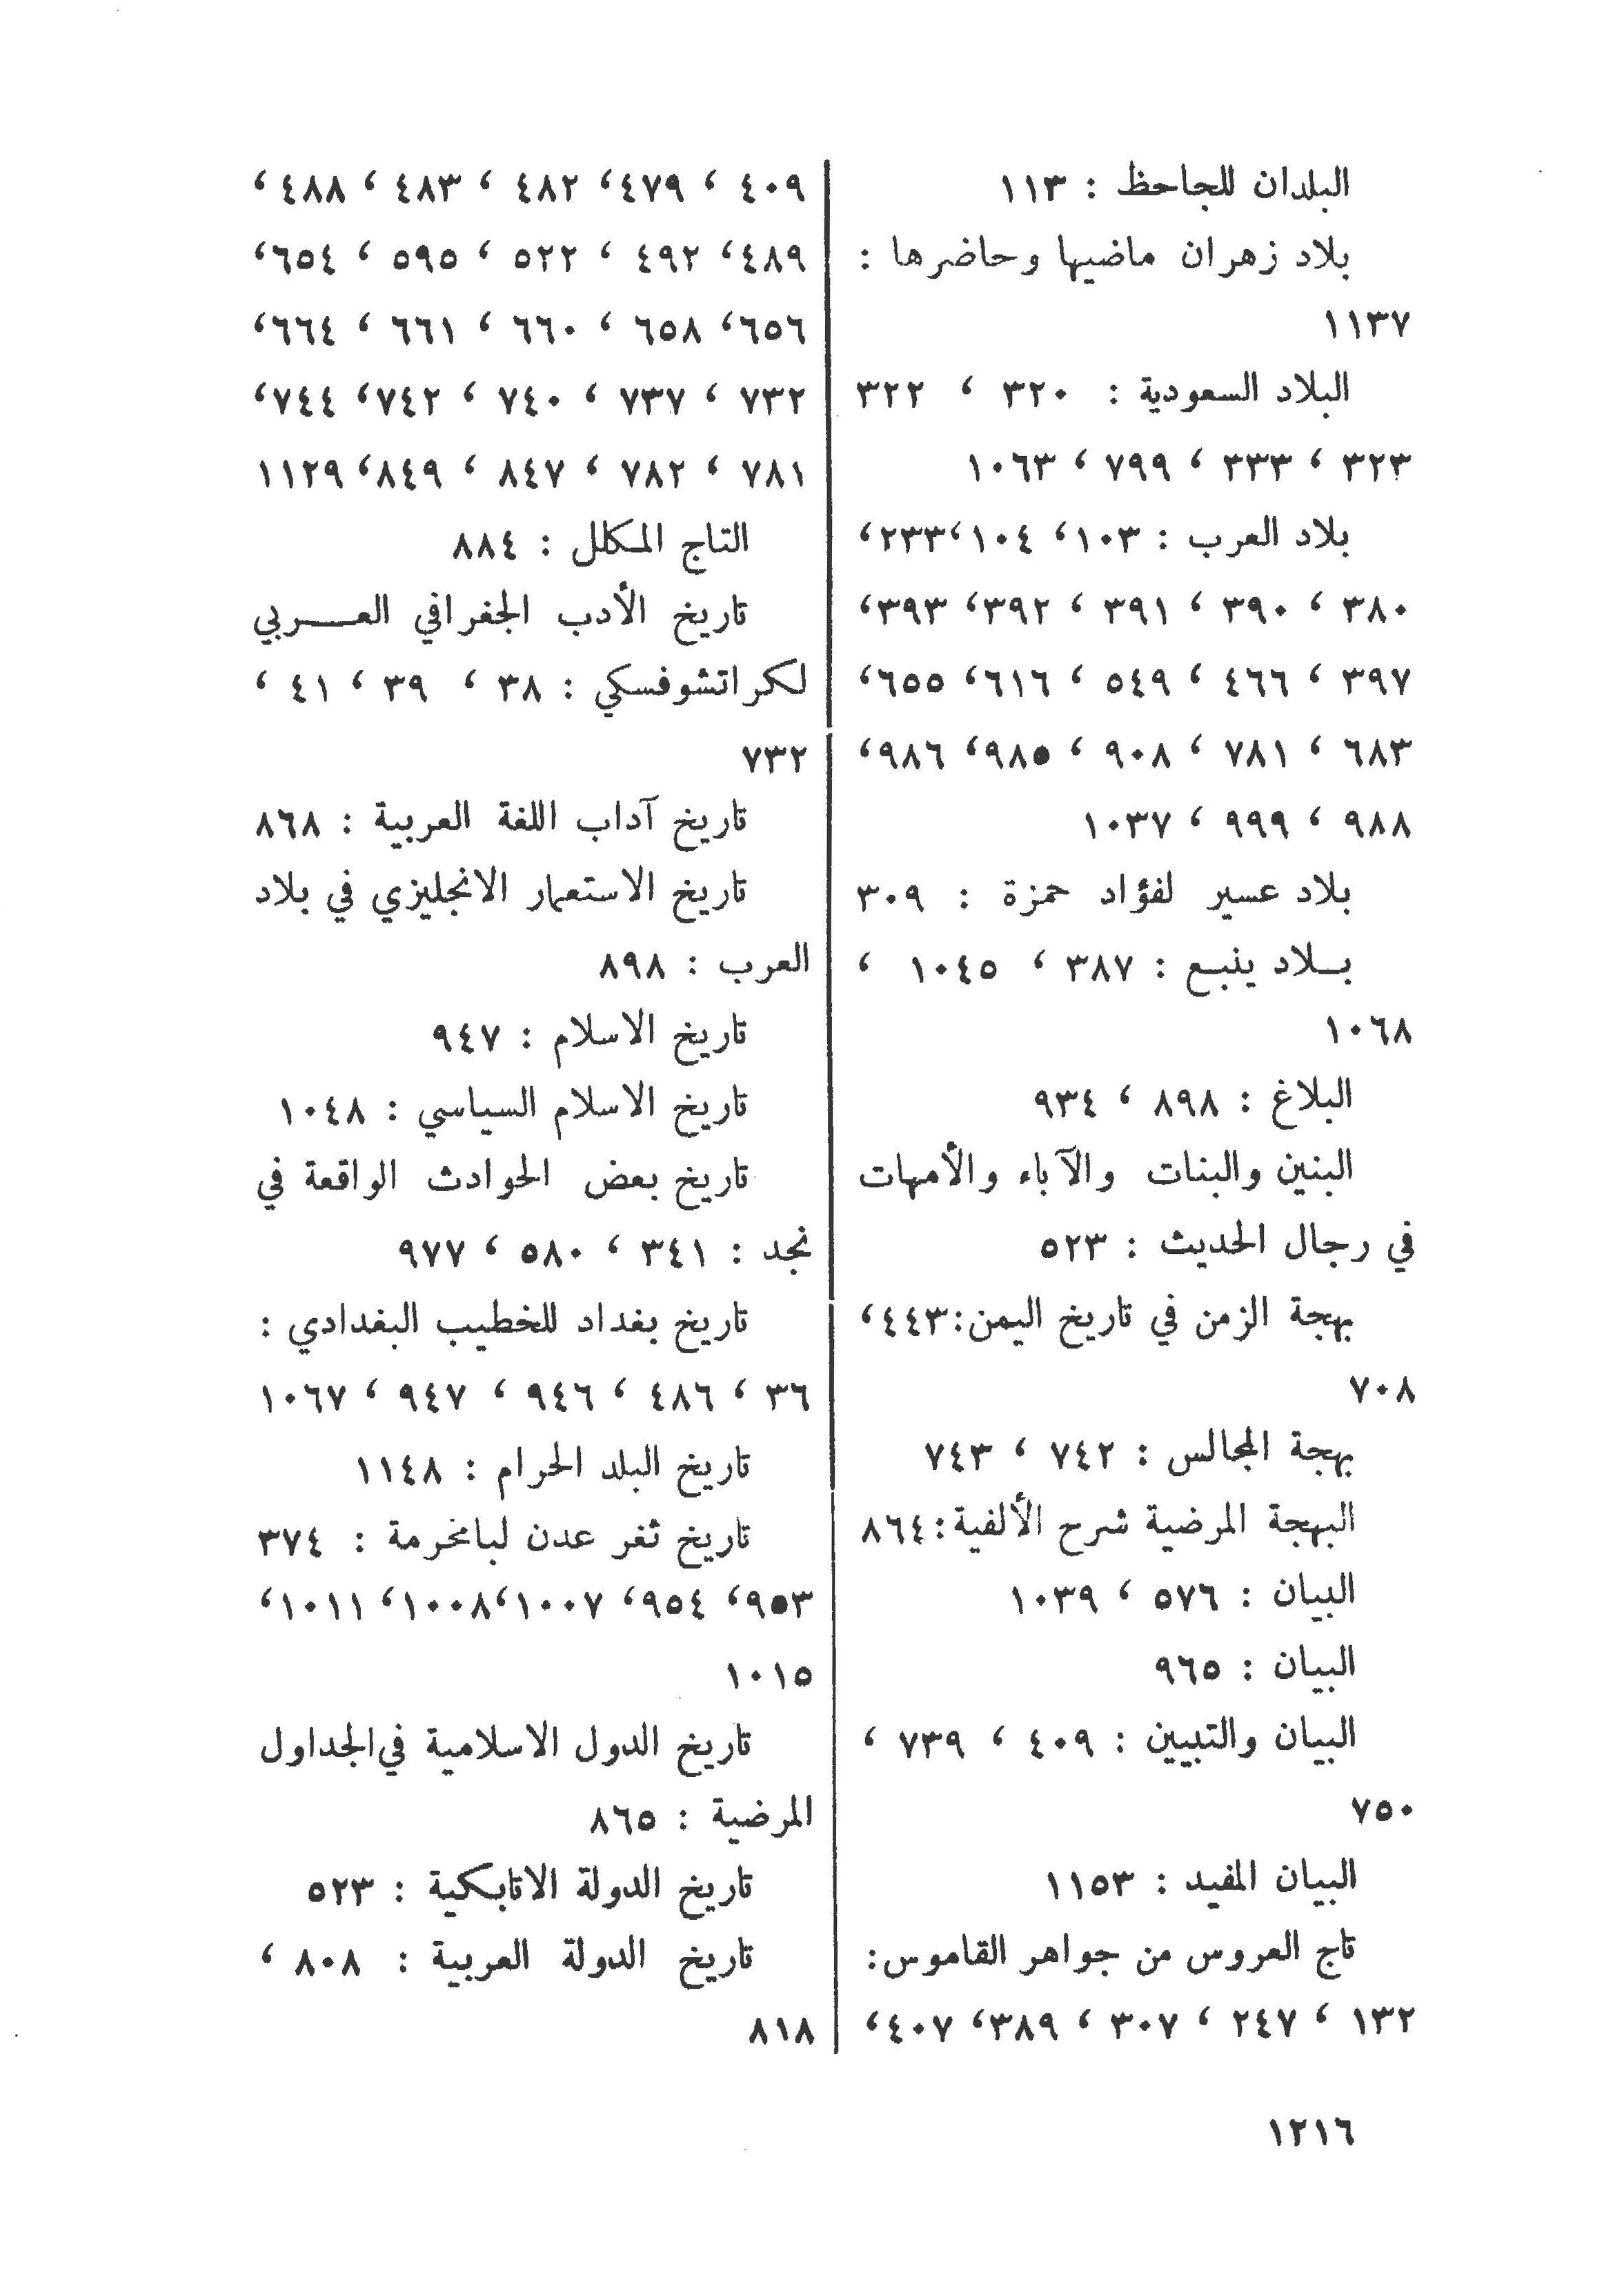 البلدان للجاحظ : ١١٣
بلاد زهران ماضيها وحاضرها :
١١٣٧
البلاد السعودية : ٣٢٠ ، ٣٢٢
٣٢٣ ، ٣٣٣ ، ٧٩٩ ، ١٠٦٣
بلاد العرب : ١٠٣، ١٠٤،٢٣٣،
٣٨٠ ، ٣٩٠ ، ٣٩١ ، ٣٩٢، ٣٩٣،
٣٩٧ ، ٤٦٦ ، ٥٤٩ ، ٦١٦، ٦٥٥،
٦٨٣ ، ٧٨١ ، ٩٠٨ ، ٩٨٥، ٩٨٦،
٩٨٨ ، ٩٩٩ ، ١٠٣٧
بلاد عسير لفؤاد حمزة : ٣٠٩
بـلاد ينبـع : ٣٨٧ ، ١٠٤٥ ،
١٠٦٨
البلاغ : ٨٩٨ ، ٩٣٤
البنين والبنات والآباء والأمهات
في رجال الحديث : ٥٢٣
بهجة الزمن في تاريخ اليمن:٤٤٣،
٧٠٨
بهجة المجالس : ٧٤٢ ، ٧٤٣
البهجة المرضية شرح الألفية:٨٦٤
البيان : ٥٧٦ ، ١٠٣٩
البيان : ٩٦٥
البيان والتبيين : ٤٠٩ ، ٧٣٩ ،
٧٥٠
البيان المفيد : ١١٥٣
تاج العروس من جواهر القاموس:
١٣٢ ، ٢٤٧ ، ٣٠٧ ، ٣٨٩، ٤٠٧،
٤٠٩ ، ٤٧٩، ٤٨٢ ، ٤٨٣ ، ٤٨٨،
٤٨٩، ٤٩٢ ، ٥٢٢ ، ٥٩٥ ، ٦٥٤،
٦٥٦، ٦٥٨ ، ٦٦٠ ، ٦٦١ ، ٦٦٤،
٧٣٢ ، ٧٣٧ ، ٧٤٠ ، ٧٤٢، ٧٤٤،
٧٨١ ، ٧٨٢ ، ٨٤٧ ، ٨٤٩، ١١٢٩
التاج المكلل : ٨٨٤
تاريخ الأدب الجغرافي العـــربي
لكراتشوفسكي : ٣٨ ، ٣٩ ، ٤١ ،
٧٣٢
تاريخ آداب اللغة العربية : ٨٦٨
تاريخ الاستعمار الانجليزي في بلاد
العرب : ٨٩٨
تاريخ الاسلام : ٩٤٧
تاريخ الاسلام السياسي : ١٠٤٨
تاريخ بعض الحوادث الواقعة في
نجد : ٣٤١ ، ٥٨٠ ، ٩٧٧
تاريخ بغداد للخطيب البغدادي :
٣٦ ، ٤٨٦ ، ٩٤٦ ، ٩٤٧ ، ١٠٦٧
تاريخ البلد الحرام : ١١٤٨
تاريخ ثغر عدن لبامخرمة : ٣٧٤
٩٥٣، ٩٥٤، ١٠٠٧،١٠٠٨، ١٠١١،
١٠١٥
تاريخ الدول الاسلامية في الجداول
المرضية : ٨٦٥
تاريخ الدولة الاتابكية : ٥٢٣
تاريخ الدولة العربية : ٨٠٨ ،
٨١٨
١٢١٦